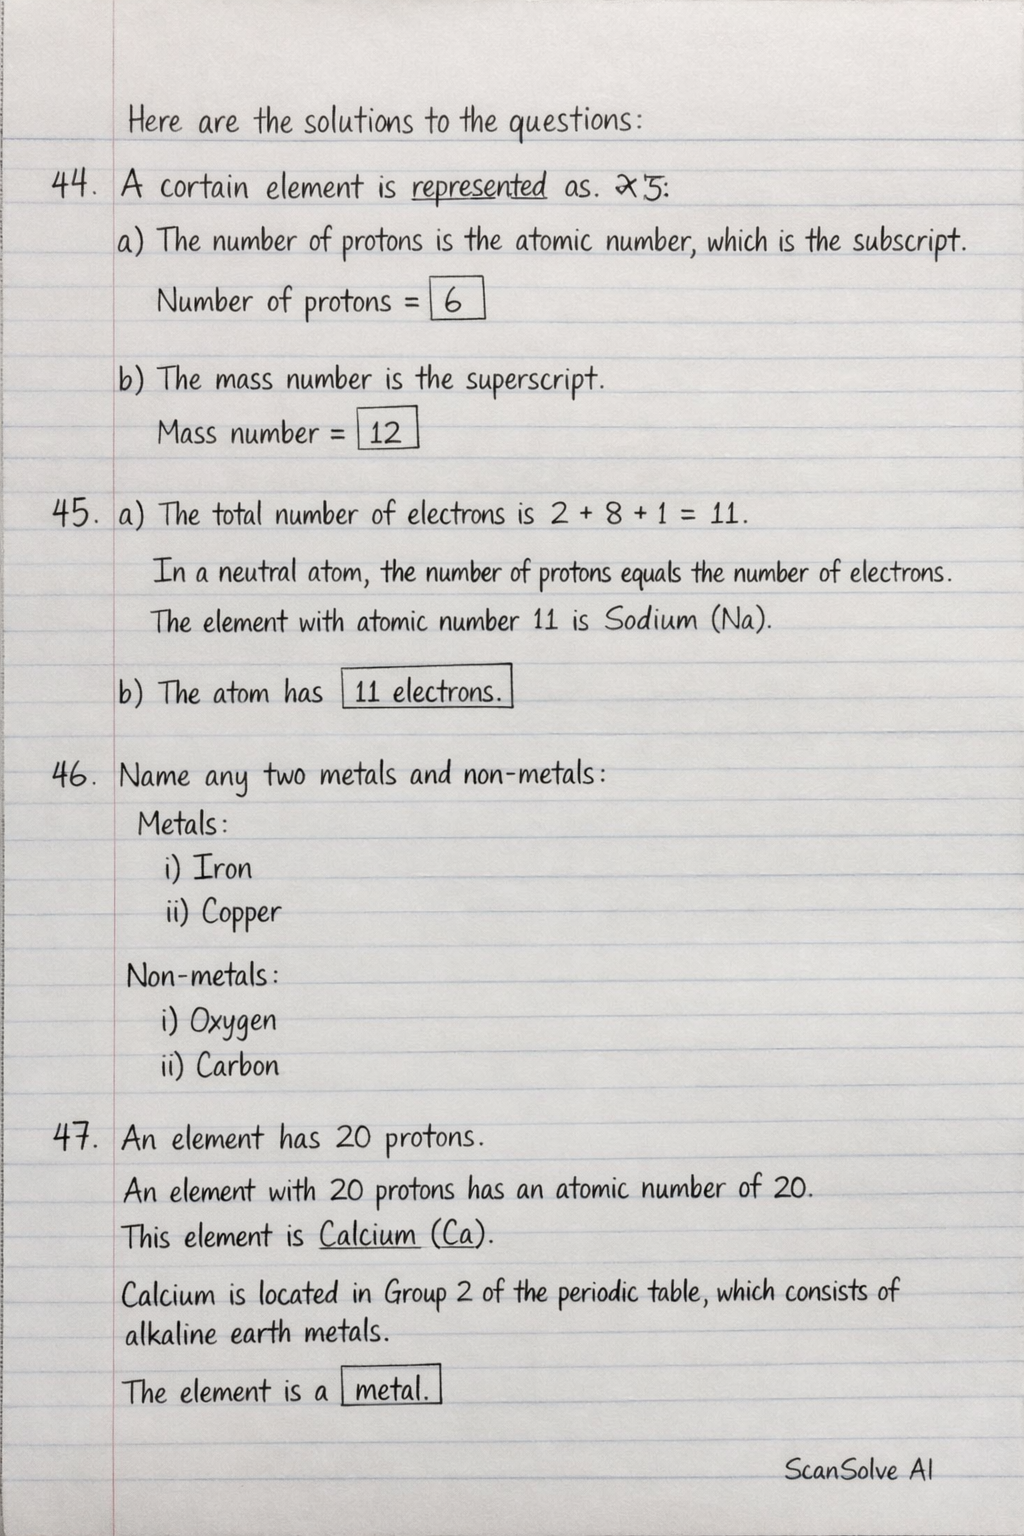 Here are the solutions to the questions:
44. A cortain element is represented as.
a) The number of protons is the atomic number, which is the subscript.
Number of protons = 6
b) The mass number is the superscript.
Mass number = 12
45. a) The total number of electrons is 2 + 8 + 1 = 11.
In a neutral atom, the number of protons equals the number of electrons.
The element with atomic number 11 is Sodium (Na).
b) The atom has 11 electrons.
46. Name any two metals and non-metals:
Metals:
i) Iron
ii) Copper
Non-metals:
i) Oxygen
ii) Carbon
47. An element has 20 protons.
An element with 20 protons has an atomic number of 20.
This element is Calcium (Ca).
Calcium is located in Group 2 of the periodic table, which consists of
alkaline earth metals.
The element is a metal.
ScanSolve AI